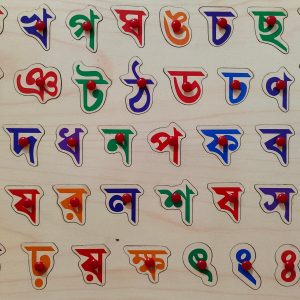 খ গ ঘ ঙ চ ছ
ঞ ট ঠ ড ঢ ণ
দ ধ ন প ফ ব
য র ল শ ষ স
ঢ় য় ক্ষ ৎ ং ঃ